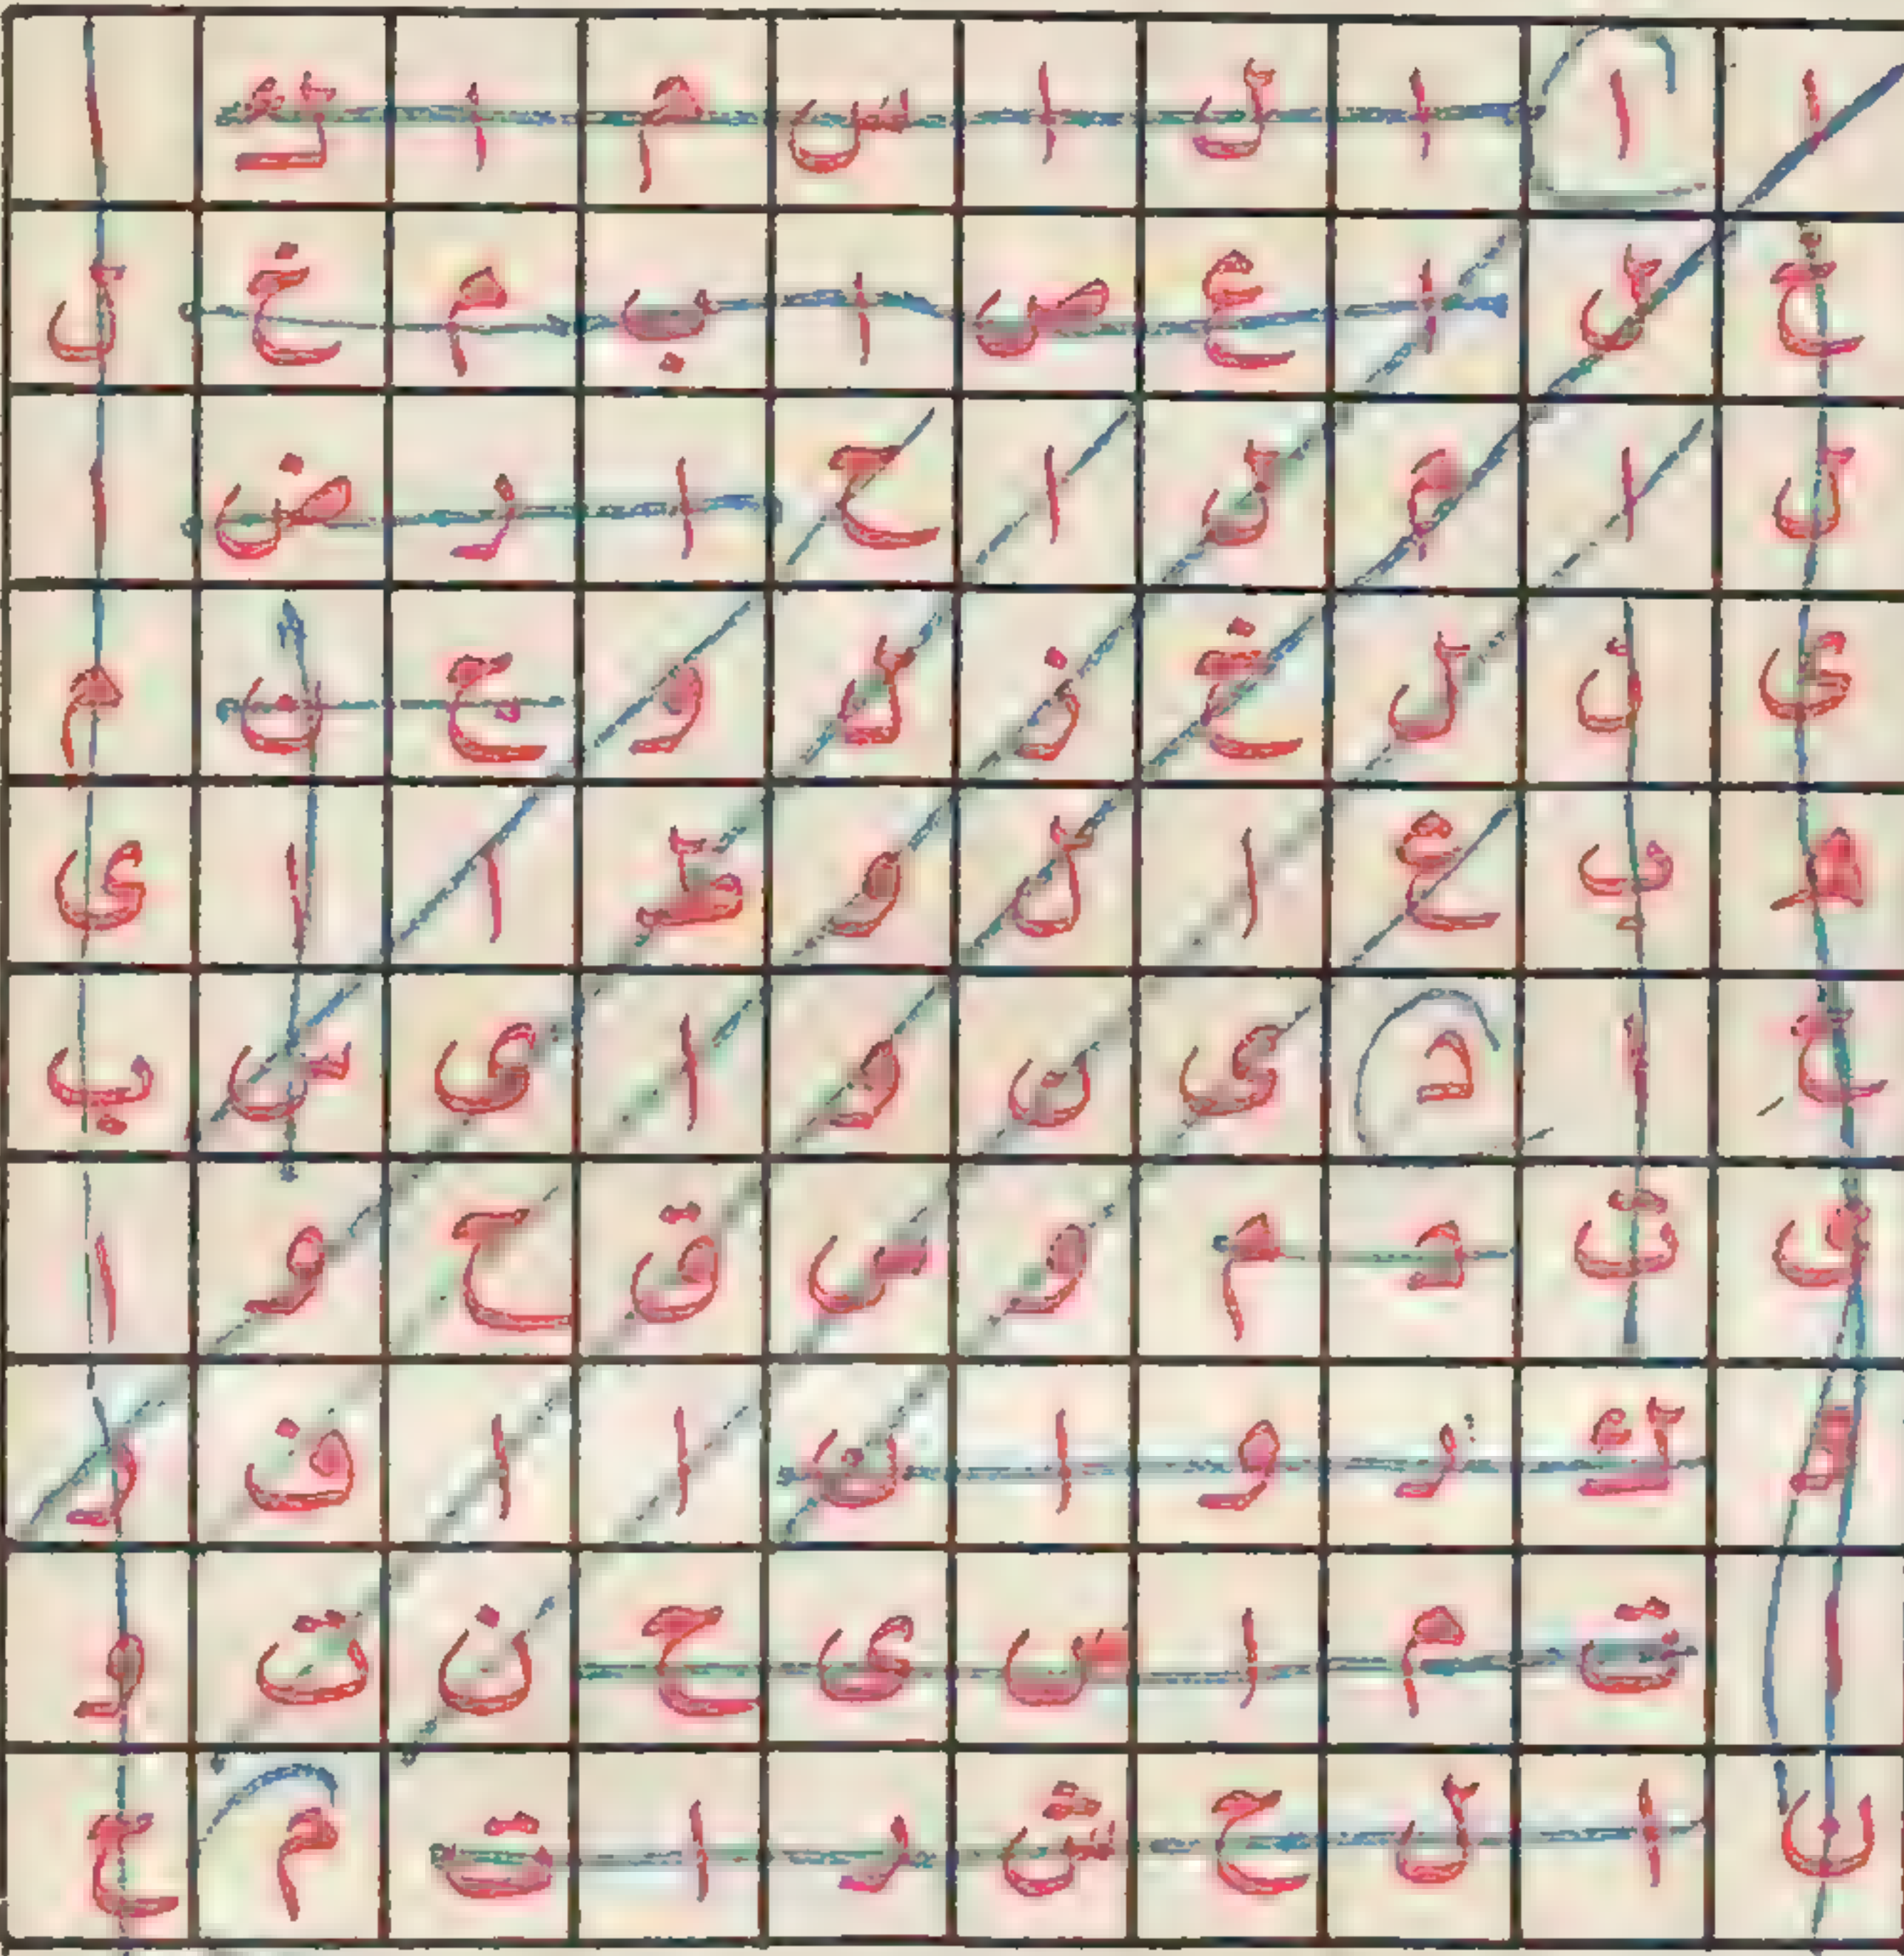 ا ا ا ل ا س م ا ك ا
خ ل ا ع ص ا ب م خ ل
ل ا م ل ا ح ا ر ض ا
ي ن ل خ ز ل و ج ن م
ه ب ع ا ل و ط ا ا ي
ج ا د ي ن و ا ي س ب
ن ت د م و س ق ح و ا
ه ك ر و ا ن ا ا ف ر
ا ت م ا س ي ح ن ت و
ن ا ل ح ش ر ا ت م ح